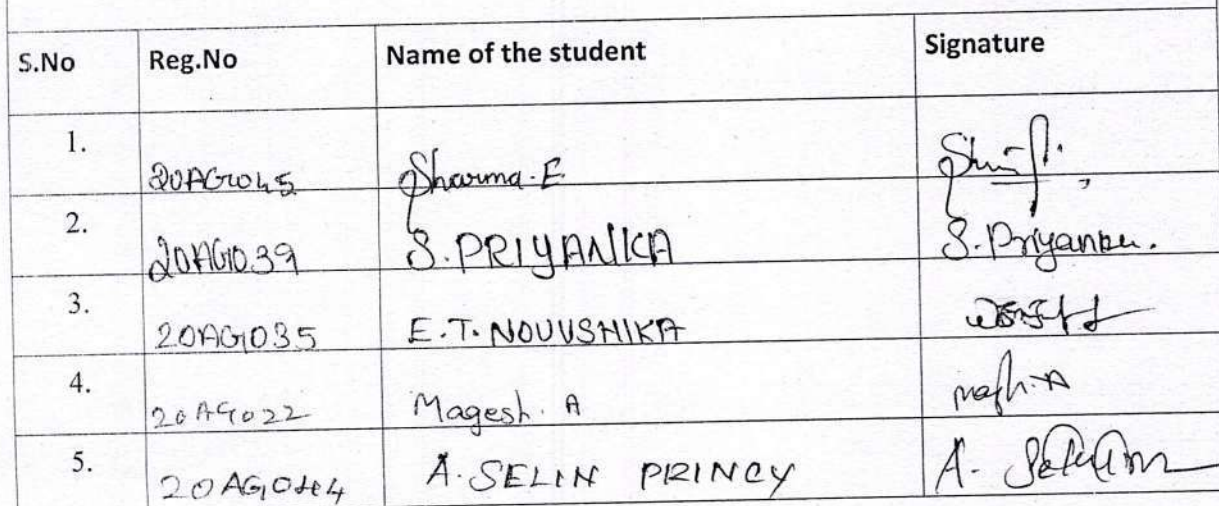 S.No Reg.No Name of the student Signature
1. 20AG045 Sharma.E
2. 20AG039 S.PRIYANKA S.Priyanka.
3. 20AG035 E.T.NOUVSHIKA
4. 20AG022 Magesh.A
5. 20AG044 A.SELIN PRINCY A.